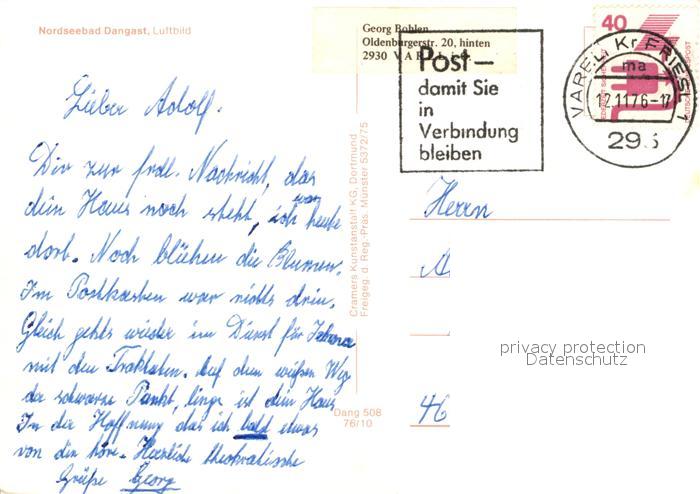 Nordseebad Dangast, Luftbild
Georg Bohlen
Oldenburgerstr. 20, hinten
2930 V A R
Post –
damit Sie
in
Verbindung
bleiben
40
VAREL, Kr FRIESL 1
ma
12.11.76-17
295
Lieber Adolf.
Dir zur frdl. Nachricht, das
dein Haus noch steht, ich war heute
dort. Noch blühen die Blumen.
Im Postkasten war nichts drin.
Gleich gehts wieder im Dienst für Jehova
mit den Traktaten. Auf dem weißen Weg
der schwarze Punkt, links ist dein Haus
In der Hoffnung das ich bald etwas
von dir höre. Herzliche theokratische
Grüße Georg
Cramers Kunstanstalt KG, Dortmund
Freigeg. d. Reg.-Präs. Münster 5372/75
Dang 508
76/10
Herrn
A
46
privacy protection
Datenschutz